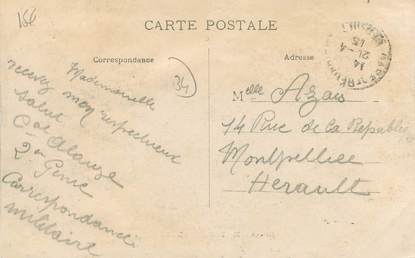 15€
CARTE POSTALE
Correspondance
Adresse
34
Mademoiselle
recevez mon respectueux
salut
2e Génie
Correspondance
militaire
Melle Azaïs
14 Rue de la République
Montpellier
Hérault
14
21-4
15